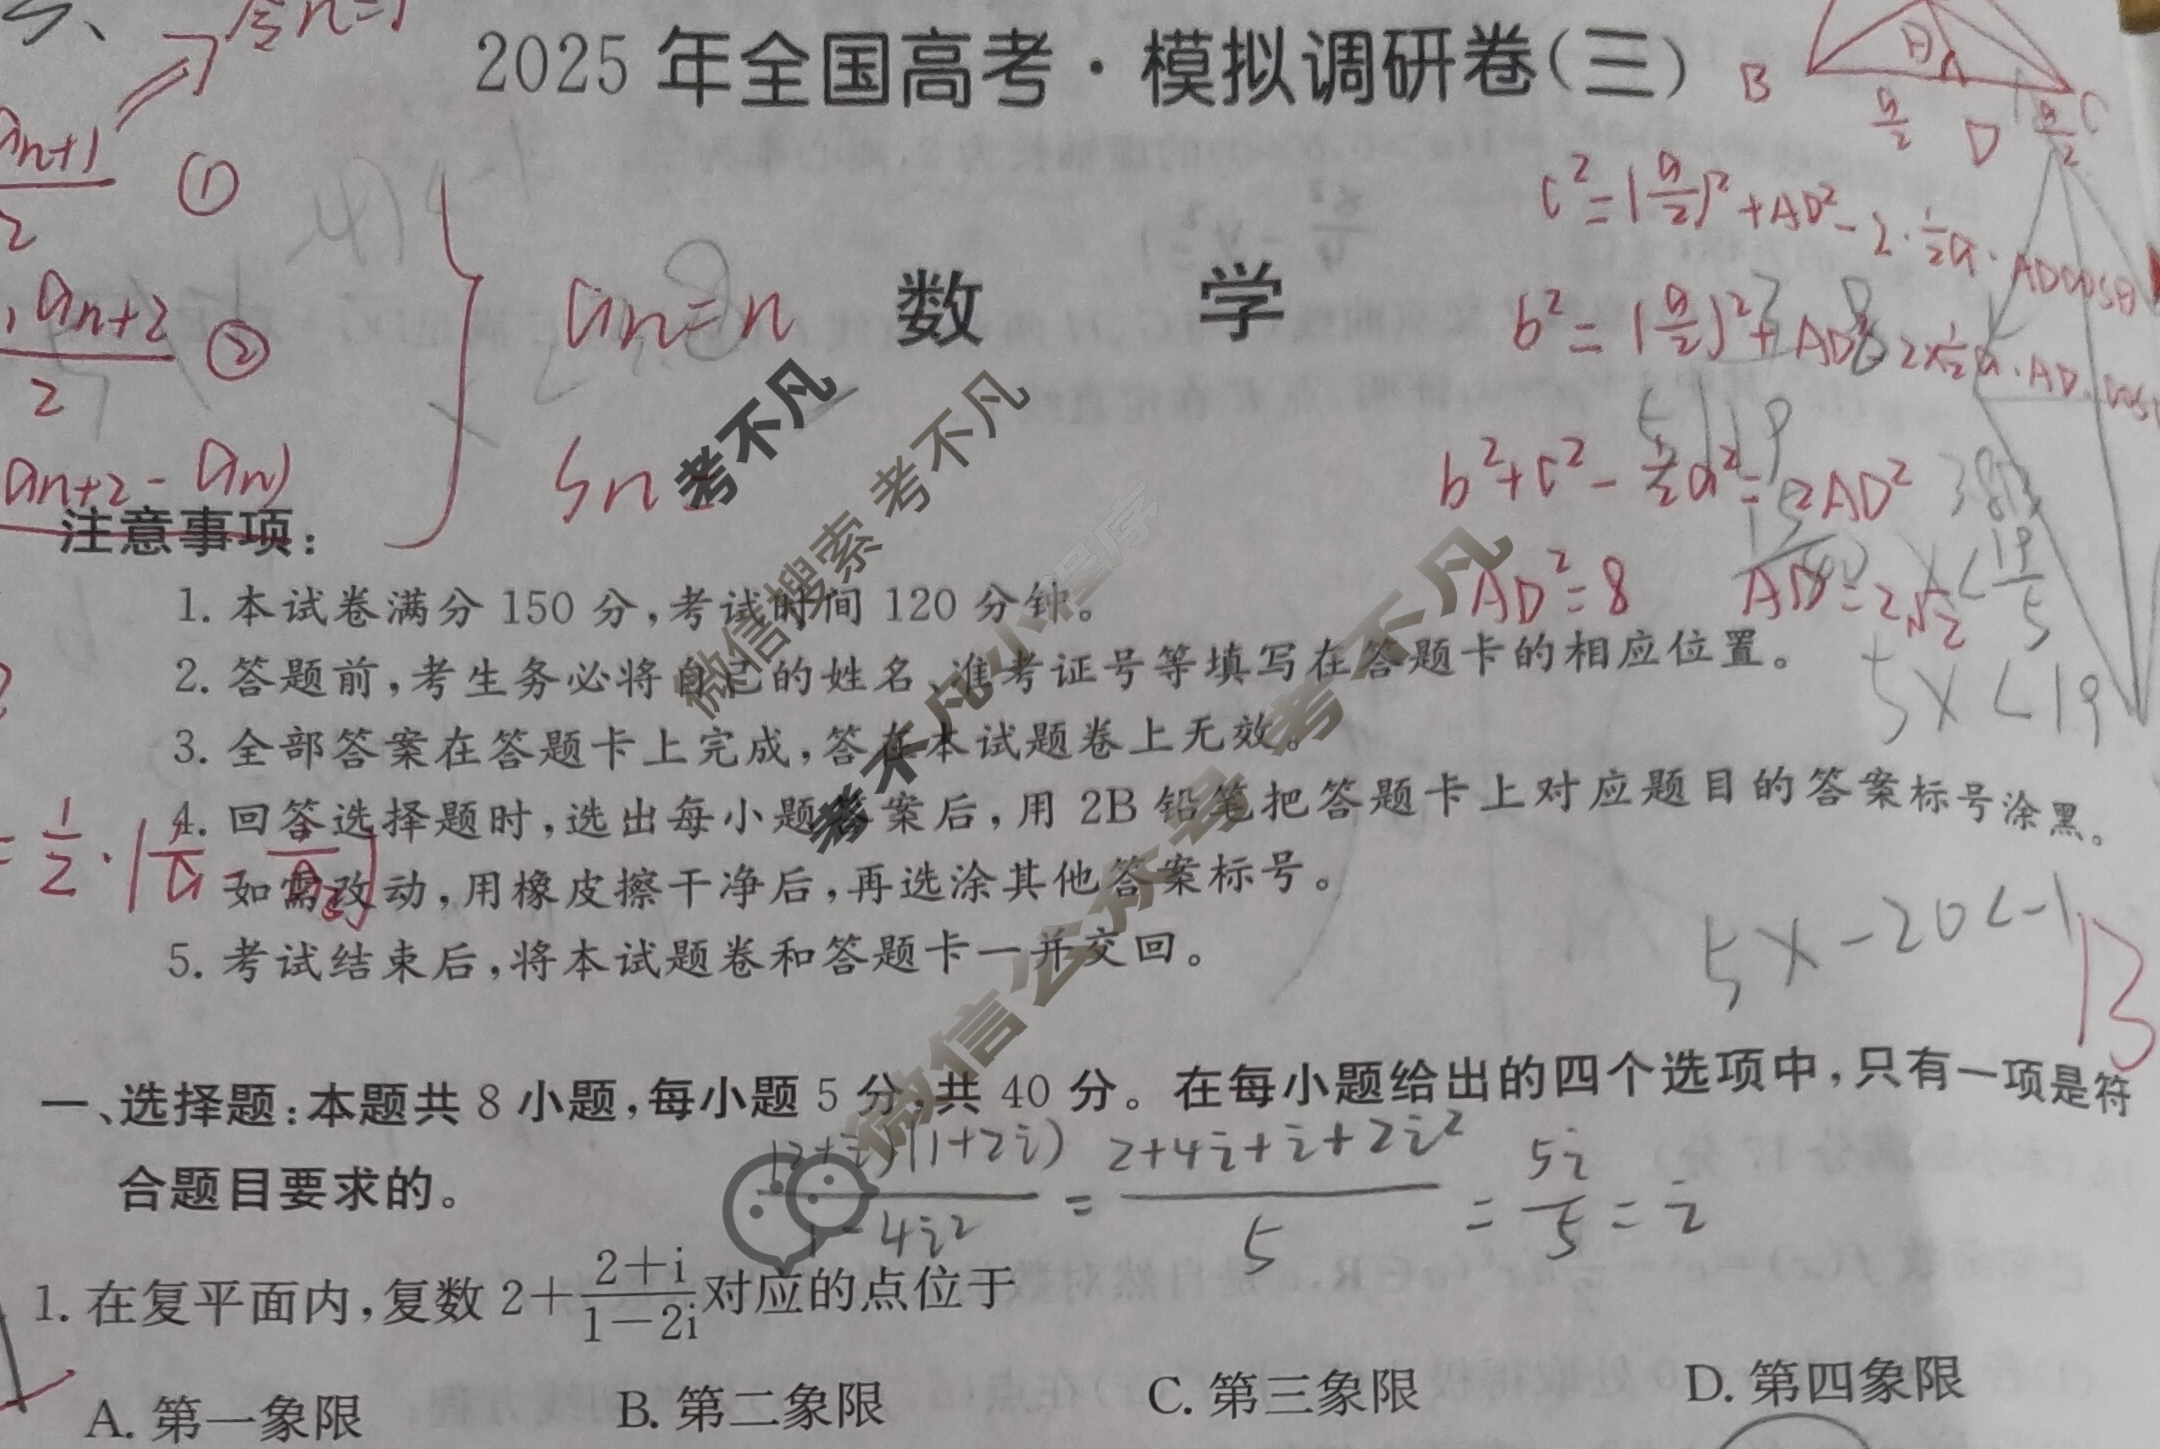 令n=1
2025年全国高考·模拟调研卷(三)
B
D
C
a/2
a/2
an+1/2 ①
an+2/2 ②
an+2-an)
an=n
Sn=
数 学
c²=(a/2)²+AD²-2·1/2a·ADcosθ
b²=(a/2)²+AD²
2×1/2a·AD·cos
b²+c²-1/2a²=2AD²
AD²=8 AD=2√2
x<19/5
5x<19
5x-20<-1
13
注意事项:
1. 本试卷满分150分,考试时间120分钟。
2. 答题前,考生务必将自己的姓名、准考证号等填写在答题卡的相应位置。
3. 全部答案在答题卡上完成,答在本试题卷上无效。
4. 回答选择题时,选出每小题答案后,用2B铅笔把答题卡上对应题目的答案标号涂黑。
如需改动,用橡皮擦干净后,再选涂其他答案标号。
5. 考试结束后,将本试题卷和答题卡一并交回。
考不凡
微信搜索 考不凡
考不凡小程序
微信公众号 考不凡
一、选择题:本题共8小题,每小题5分,共40分。在每小题给出的四个选项中,只有一项是符
合题目要求的。
(2+i)(1+2i)/1-4i² = 2+4i+i+2i²/5 = 5i/5 = i
1. 在复平面内,复数2+2+i/1-2i对应的点位于
A. 第一象限 B. 第二象限 C. 第三象限 D. 第四象限